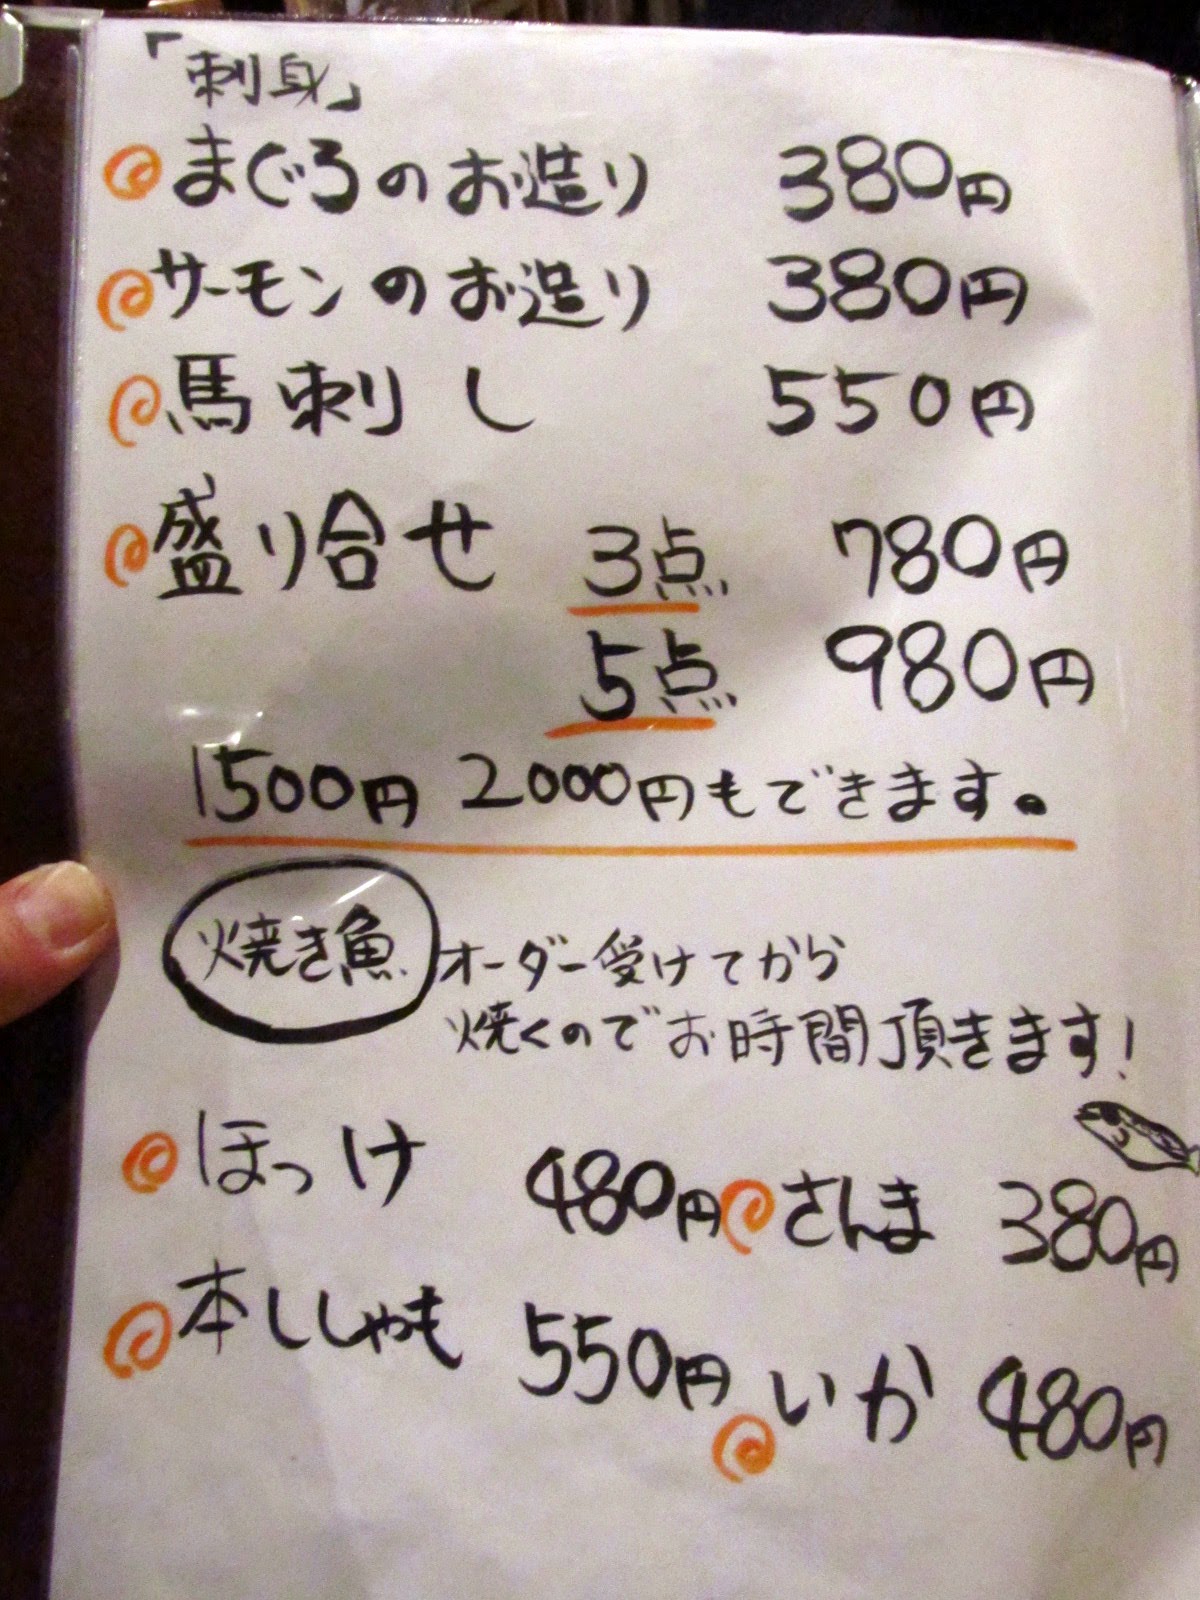 「刺身」
まぐろのお造り 380円
サーモンのお造り 380円
馬刺し 550円
盛り合せ 3点 780円
5点 980円
1500円 2000円もできます。
焼き魚 オーダー受けてから
焼くのでお時間頂きます!
ほっけ 480円 さんま 380円
本ししゃも 550円 いか 480円